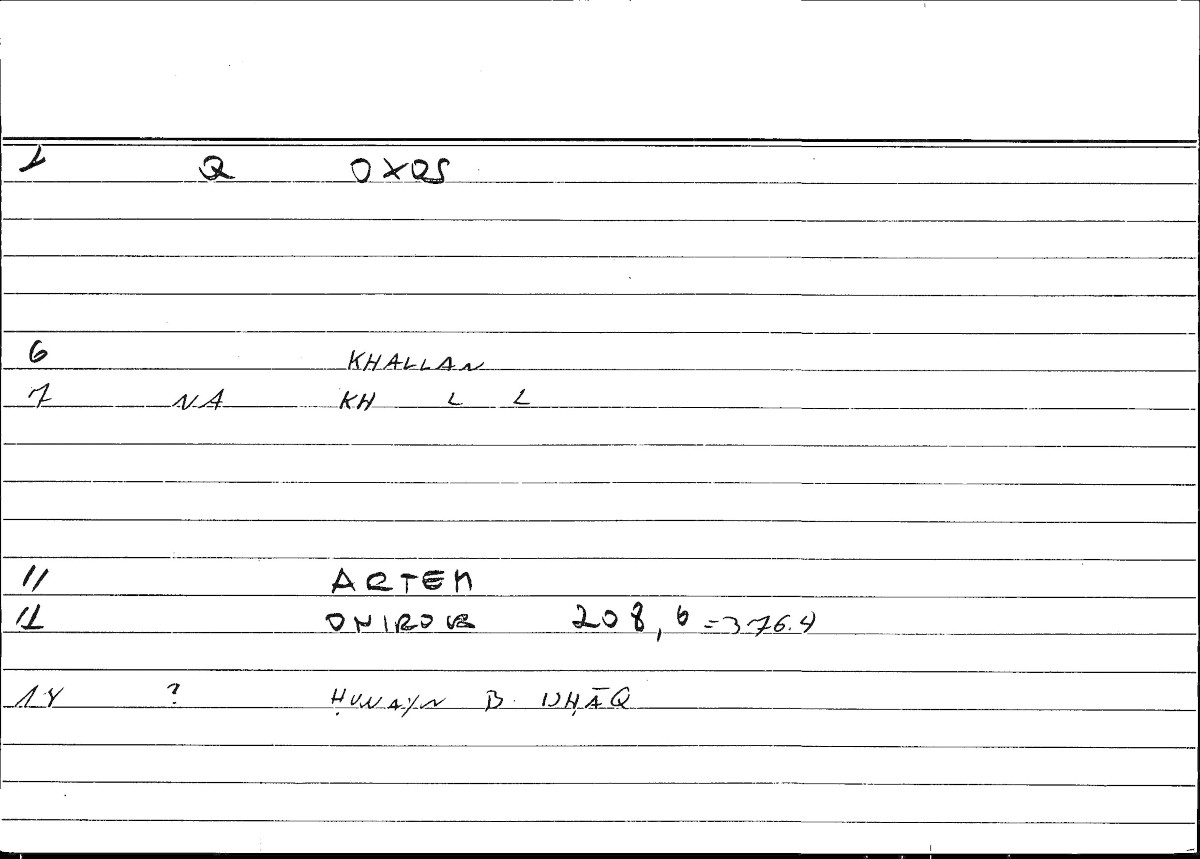 1 Q OXOS
6 KHALLAN
7 NA KH L L
11 ARTEM
12 ONIROCR 208, 6 = 376.4
14 ? ḤUNAYN B. ISḤĀQ